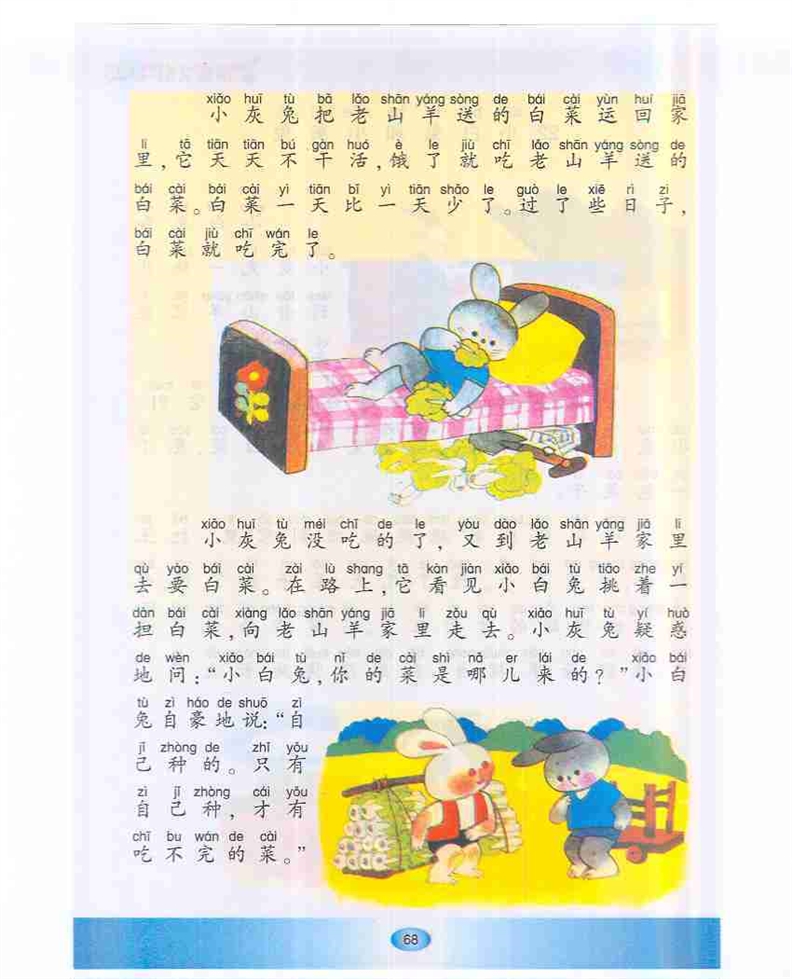 xiǎo huī tù bǎ lǎo shān yáng sòng de bái cài yùn huí jiā
小灰兔把老山羊送的白菜运回家
li tā tiān tiān bú gàn huó è le jiù chī lǎo shān yáng sòng de
里,它天天不干活,饿了就吃老山羊送的
bái cài bái cài yì tiān bǐ yì tiān shǎo le guò le xiē rì zi
白菜。白菜一天比一天少了。过了些日子,
bái cài jiù chī wán le
白菜就吃完了。
xiǎo huī tù méi chī de le yòu dào lǎo shān yáng jiā li
小灰兔没吃的了,又到老山羊家里
qù yào bái cài zài lù shang tā kàn jiàn xiǎo bái tù tiāo zhe yí
去要白菜。在路上,它看见小白兔挑着一
dàn bái cài xiàng lǎo shān yáng jiā li zǒu qù xiǎo huī tù yí huò
担白菜,向老山羊家里走去。小灰兔疑惑
de wèn xiǎo bái tù nǐ de cài shì nǎ er lái de xiǎo bái
地问:“小白兔,你的菜是哪儿来的?”小白
tù zì háo de shuō zì
兔自豪地说:“自
jǐ zhòng de zhǐ yǒu
己种的。只有
zì jǐ zhòng cái yǒu
自己种,才有
chī bu wán de cài
吃不完的菜。”
68